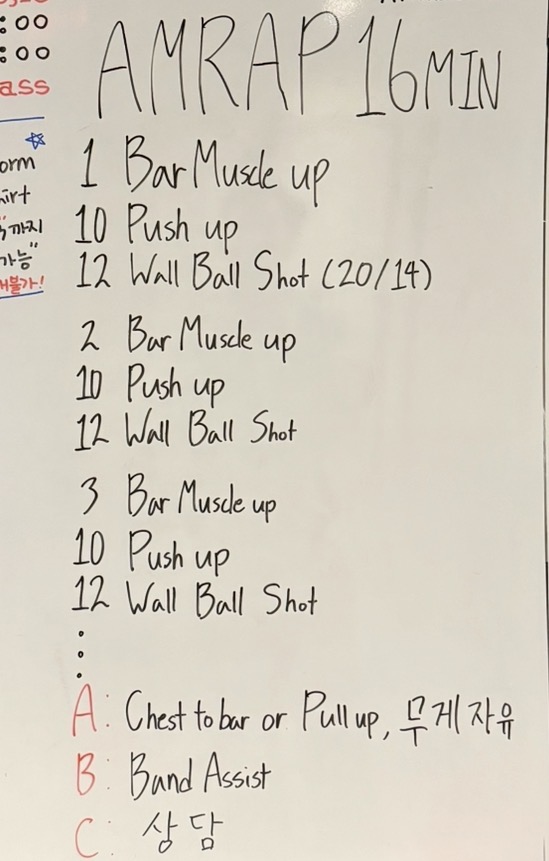 :00
:00
ass
orm
까지
가능"
불가!
AMRAP 16 MIN
1 Bar Muscle up
10 Push up
12 Wall Ball Shot (20/14)
2 Bar Muscle up
10 Push up
12 Wall Ball Shot
3 Bar Muscle up
10 Push up
12 Wall Ball Shot
⋮
A: Chest to bar or Pull up, 무게 자유
B: Band Assist
C: 상담